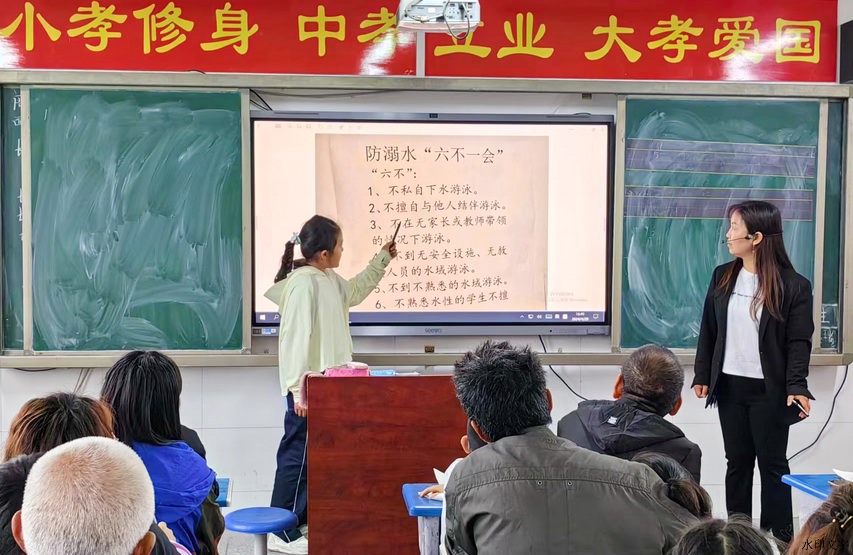 小孝修身 中孝立业 大孝爱国
防溺水“六不一会”
“六不”：
1、不私自下水游泳。
2、不擅自与他人结伴游泳。
3、不在无家长或教师带领
的情况下游泳。
不到无安全设施、无救
人员的水域游泳。
5、不到不熟悉的水域游泳。
6、不熟悉水性的学生不擅